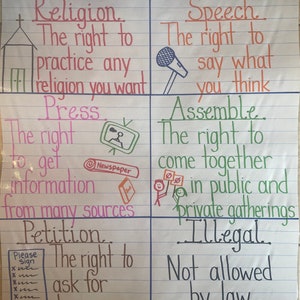 Religion
The right to
practice any
religion you want
Speech
The right to
say what
you think
Press
The right
to get
information
from many sources
Newspaper
Assemble
The right to
come together
in public and
private gatherings
Petition
Please
Sign
The right to
ask for
Illegal
Not allowed
by law